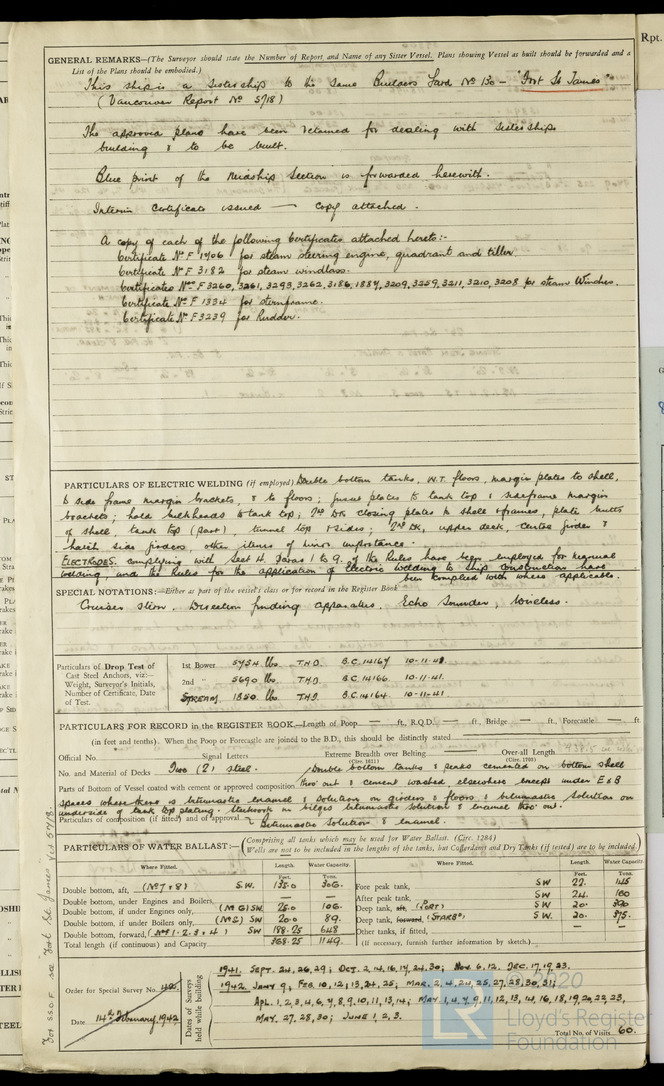 GENERAL REMARKS—(The Surveyor should state the Number of Report and Name of any Sister Vessel. Plans showing Vessel as built should be forwarded and a
List of the Plans should be embodied.)
This ship is a Sistership to the same Builders Yard Nº 130 - "Fort St James"
(Vancouver Report Nº 5718)
The approved plans have been retained for dealing with sisterships
building & to be built.
Blue print of the Midship Section is forwarded herewith.
Interim Certificate issued — copy attached.
A copy of each of the following Certificates attached hereto:-
Certificate Nº F 1906 for steam steering engine, quadrant and tiller
Certificate Nº F 3182 for steam windlass.
Certificates Nºs F 3260, 3261, 3293, 3262, 3186, 1887, 3209, 3259, 3211, 3210, 3208 for steam Winches.
Certificate Nº F 1334 for sternframe.
Certificate Nº F 3239 for Rudder.
PARTICULARS OF ELECTRIC WELDING (if employed) Double bottom tanks, W.T. floors, margin plates to shell,
& side frame margin brackets, & to floors; gusset plates to tank top & sideframe margin
brackets; hold bulkheads to tank top; 2nd DK closing plates to shell & frames, plate butts
of shell, tank top (part), tunnel top & sides; 2nd DK, upper deck, centre girder &
hatch side girders, other items of minor importance.
ELECTRODES complying with Sect H. Paras 1 to 9. of the Rules have been employed for manual
welding, and the Rules for the application of Electric Welding to Ship Construction have
been complied with where applicable.
SPECIAL NOTATIONS:—Either as part of the vessel's class or for record in the Register Book
Cruiser stern, Direction finding apparatus, Echo Sounder, Wireless.
Particulars of Drop Test of
Cast Steel Anchors, viz:—
Weight, Surveyor's Initials,
Number of Certificate, Date
of Test.
1st Bower 5754 lbs. T.H.D. B.C. 14167 10-11-41.
2nd " 5690 lbs. T.H.D. B.C. 14166 10-11-41.
STREAM 1850 lbs. T.H.D. B.C. 14164 10-11-41
PARTICULARS FOR RECORD in the REGISTER BOOK.—Length of Poop — ft., R.Q.D. — ft., Bridge — ft., Forecastle — ft.
(in feet and tenths). When the Poop or Forecastle are joined to the B.D., this should be distinctly stated
Official No. Signal Letters Extreme Breadth over Belting Over-all Length
(Circ. 1611) (Circ. 1703)
No. and Material of Decks Two (2) steel.
Parts of Bottom of Vessel coated with cement or approved composition Double bottom tanks & peaks cemented on bottom shell
thro' out & cement washed elsewhere except under E & B
spaces where there is bitumastic enamel & solution on girders & floors & bitumastic solution on
underside of tank top plating. in bilges bitumastic solution & enamel thro' out.
Particulars of composition (if fitted) and of approval Bitumastic Solution & enamel.
PARTICULARS OF WATER BALLAST:— (Comprising all tanks which may be used for Water Ballast. (Circ. 1284)
Wells are not to be included in the lengths of the tanks, but Cofferdams and Dry Tanks (if tested) are to be included.)
Where Fitted. Length. Water Capacity. Where Fitted. Length. Water Capacity.
Feet. Tons. Feet. Tons.
Double bottom, aft, (Nº 7 & 8) S.W. 135.0 306. Fore peak tank, SW 22. 145
Double bottom, under Engines and Boilers, After peak tank, SW 24. 160
Double bottom, if under Engines only, (Nº 6) SW. 25.0 106. Deep tank, aft, (PORT) SW 20. 390
Double bottom, if under Boilers only, (Nº 5) SW 20.0 89. Deep tank, forward, (STARBD) SW. 20. 375.
Double bottom, forward, (Nº 1. 2. 3 & 4) SW 188.25 648 Other tanks, if fitted, — —
Total length (if continuous) and Capacity 368.25 1149. (If necessary, furnish further information by sketch.)
Order for Special Survey No.
Date 14th February 1942
Dates of Surveys held while building
1941. SEPT. 24, 26, 29; OCT. 2, 14, 16, 17, 24, 30; NOV. 6, 12. DEC. 17, 19, 23.
1942. JANY 9; FEB. 10, 12, 13, 24, 25; MAR. 2, 4, 24, 25, 27, 28, 30, 31;
APL. 1, 2, 3, 4, 6, 7, 8, 9, 10, 11, 13, 14; MAY 1, 4, 7, 9, 11, 12, 13, 14, 16, 18, 19, 20, 22, 23,
MAY. 27, 28, 30; JUNE 1, 2, 3.
Total No. of Visits 60.
For S.S.O.F. see "Fort St. James" Vcr 5718.
© 2020
LR
Lloyd's Register
Foundation
Rpt.